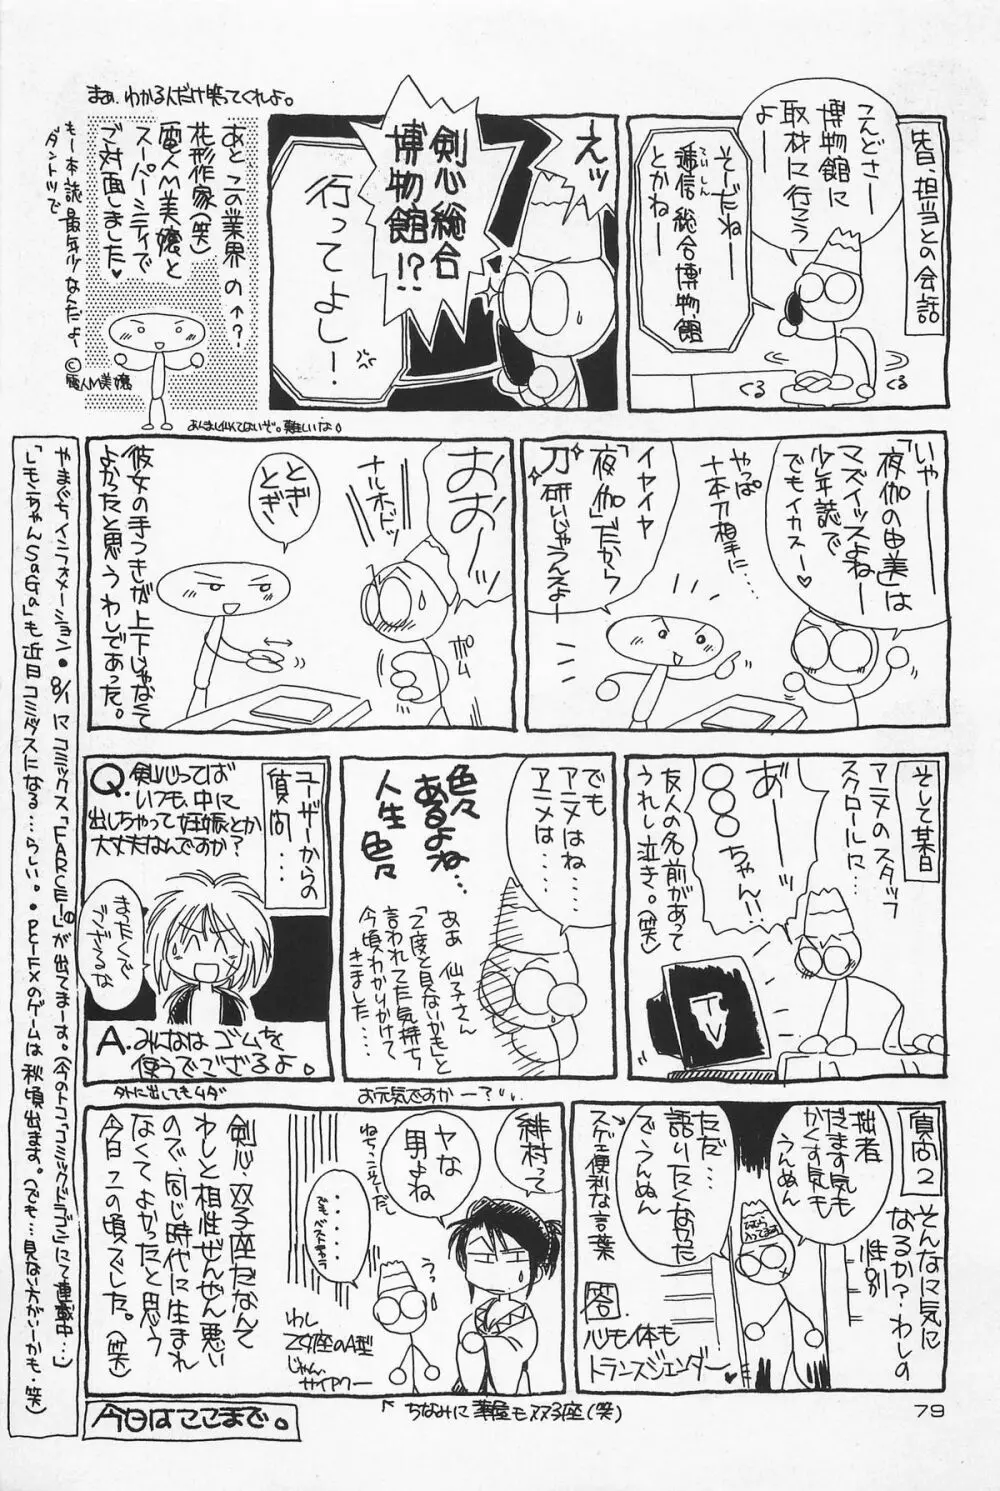 皆目、担当との会話
こんどさー
博物館に
取材に行こう
よー
そーだねー
逓信総合博物館
とかねー
ていしん
くる
くる
えッ
剣心総合
博物館!?
行ってよし!
まぁ、わかる人だけ笑ってくれよ。
あとこの業界の→?
花形作家(笑)
電人M美嬢と
スーパーシティで
ご対面しました♥
もー本誌最年少なんだよ
ダントツで
©電人M美嬢
あんまし似てないぞ。難しいな。
いやーー
「夜伽の由美」は
マズイッスよねー
少年誌で
でもイカスー♥
やっぱ
十本刀相手に…
イヤイヤ
「夜伽」だから
刀研いじゃうんスよー
おおーッ
ナルホドッ
ポム
とぎ
とぎ
彼女の手つきが上下じゃなくて
よかったと思うわしであった。
そして某日
アニメのスタッフ
スクロールに…
あ"ー
○○○ちゃん!!
友人の名前があって
うれし泣き。(笑)
TV
でも
アニメはね…
アニメは…
色々
あるよね…
人生
色々
ああ 仙子さん
「2度と見ないかも」と
言われてた気持ち
今頃わかりかけて
きました…
お元気ですかー?
ユーザーからの
質問…
Q.剣心ってば
いつも、中に
出しちゃって妊娠とか
大丈夫なんですか?
まったくで
ござるな
A.みんなは ゴムを
使うでござるよ。
外に出してもムダ
質問2
そんなに気に
なるか?わしの
性別
拙者
だます気も
かくす気も
うんぬん
ただ…
語りたくなった
でうんぬん
スゲェ便利な言葉
答.
心も体も
トランスジェンダー
緋村って
ヤな
男よね
ねちっこそーだし
うっ
わし
乙女座のA型
じゃん
サイアクー
剣心、双子座だなんて
わしと相性ぜんぜん悪い
ので、同じ時代に生まれ
なくてよかったと思う
今日このごろでした。(笑)
ちなみに 薫屋も双子座(笑)
今日はここまで。
やまぐちインフォメーション●8/1にコミックス「FARCE!」が出てまーす。(今のトコ「コミックドラゴン」にて連載中…)
「レモンちゃんSaGa」も近日コミックスになる…らしい。●PC-FXのゲームは秋頃出ます。(でも…見ない方がいーかも・笑)
79